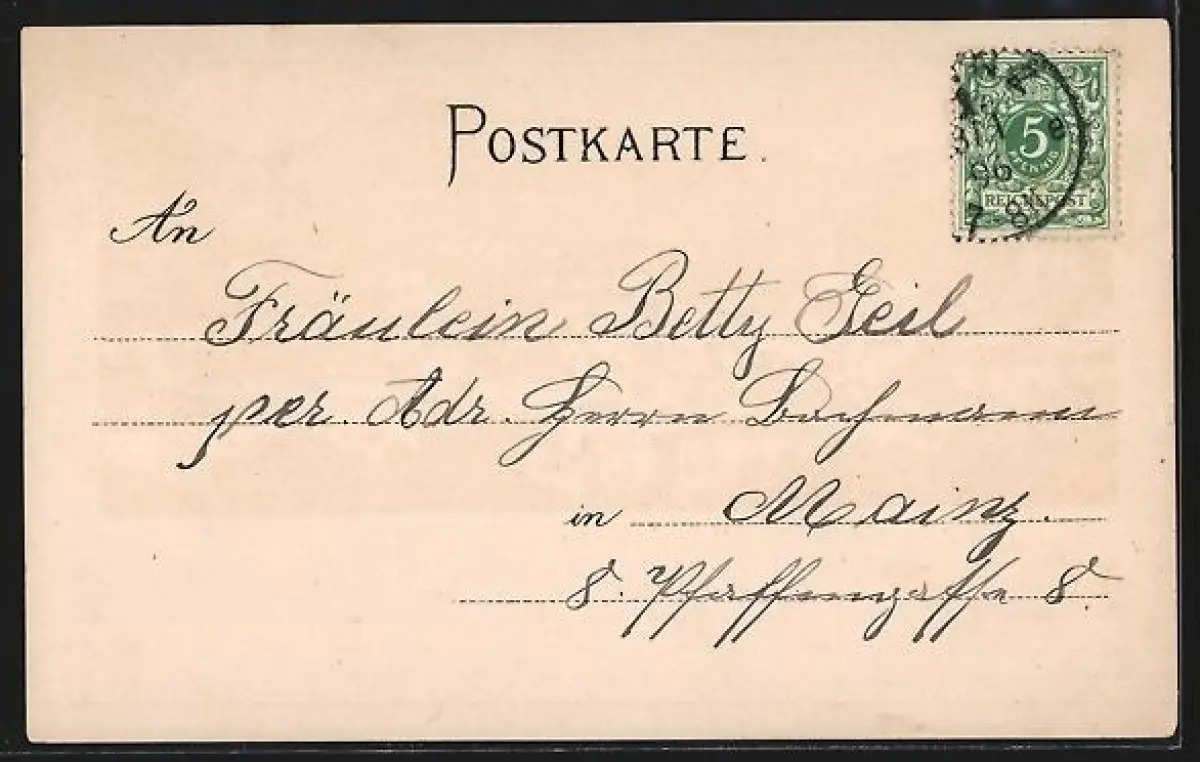 POSTKARTE.
5
PFENNIG
REICHSPOST
31 1
96
7 8N
An
Fräulein Betty Geil
per. Adr. Herrn Bachmann
in Mainz.
8. Pfaffengasse 8.